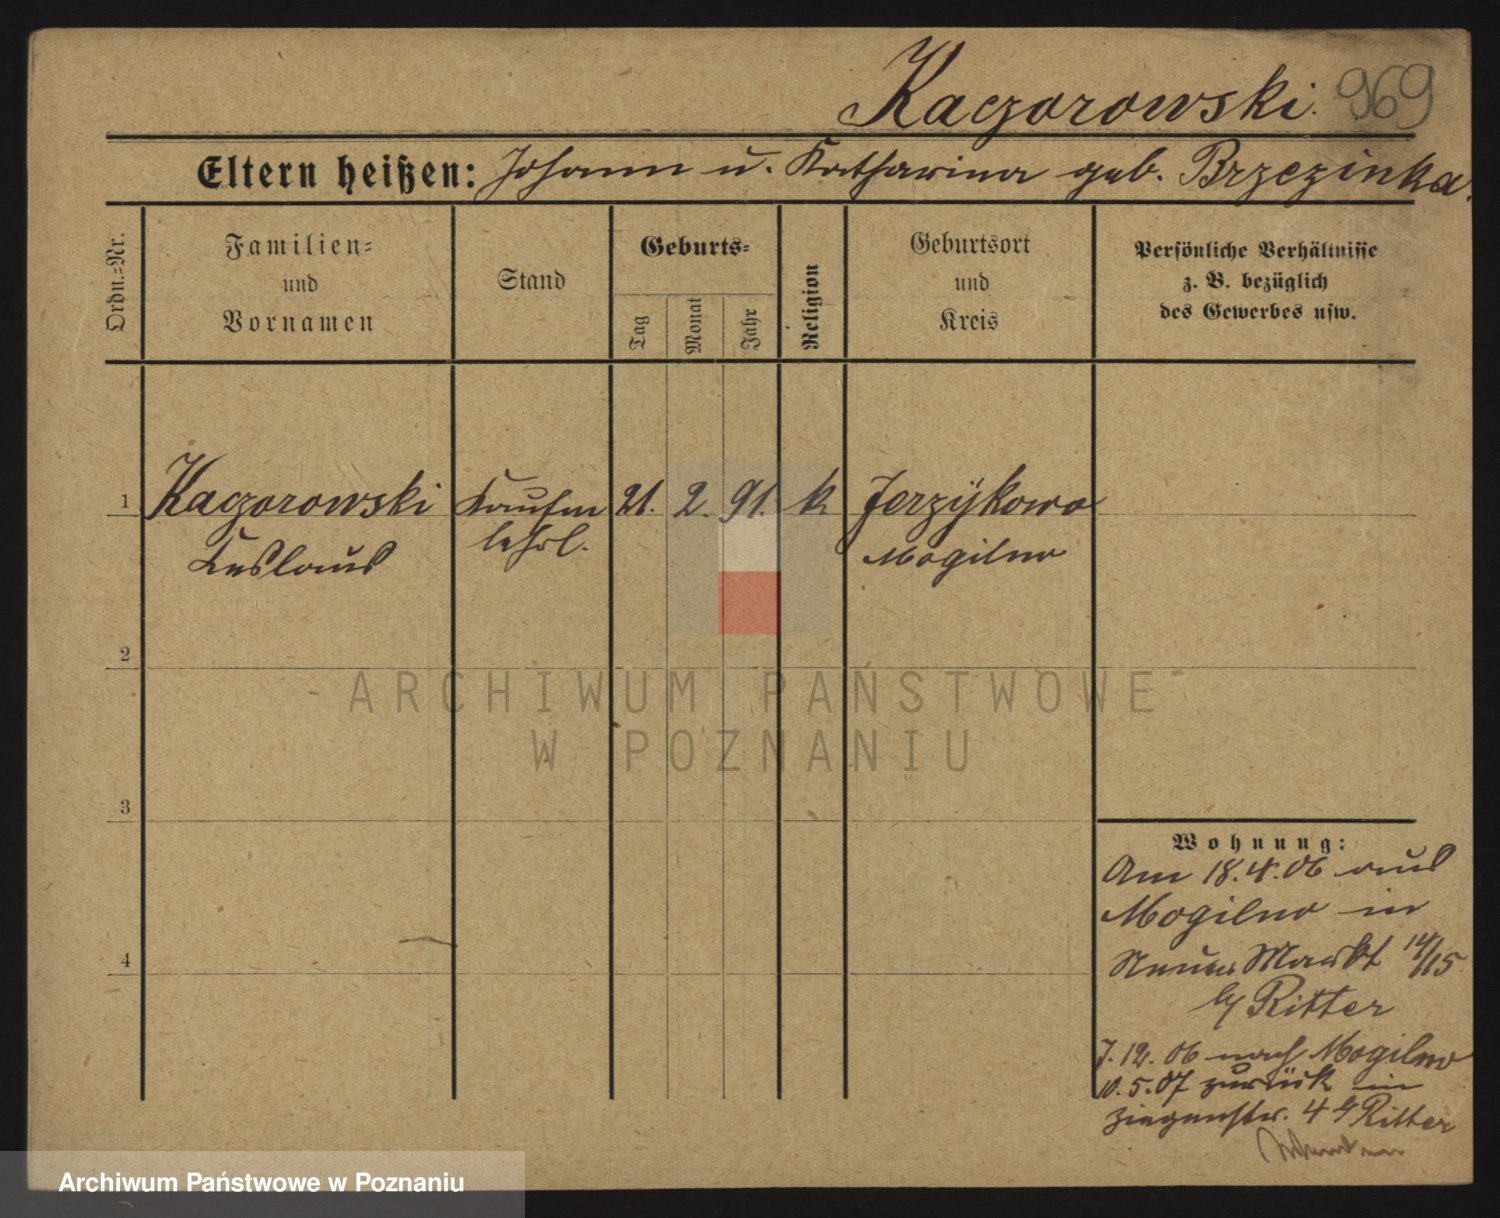 Kaczorowski. 969
Eltern heißen: Johann u. Katharina geb. Brzezinka.
Ordn.=Nr.
Familien=
und
Vornamen
Stand
Geburts=
Tag
Monat
Jahr
Religion
Geburtsort
und
Kreis
Persönliche Verhältnisse
z. B. bezüglich
des Gewerbes usw.
1 Kaczorowski Kaufm 21. 2. 91. k Jerzÿkowo
Ceslaus lehrl. Mogilno
2
ARCHIWUM PAŃSTWOWE
W POZNANIU
3
Wohnung:
Am 18.4.06 aus
Mogilno in
Neuer Markt 14/15
b/ Ritter
4
7.12.06 nach Mogilno
10.5.07 zurück in
Ziegenstr. 4 b/ Ritter
Archiwum Państwowe w Poznaniu